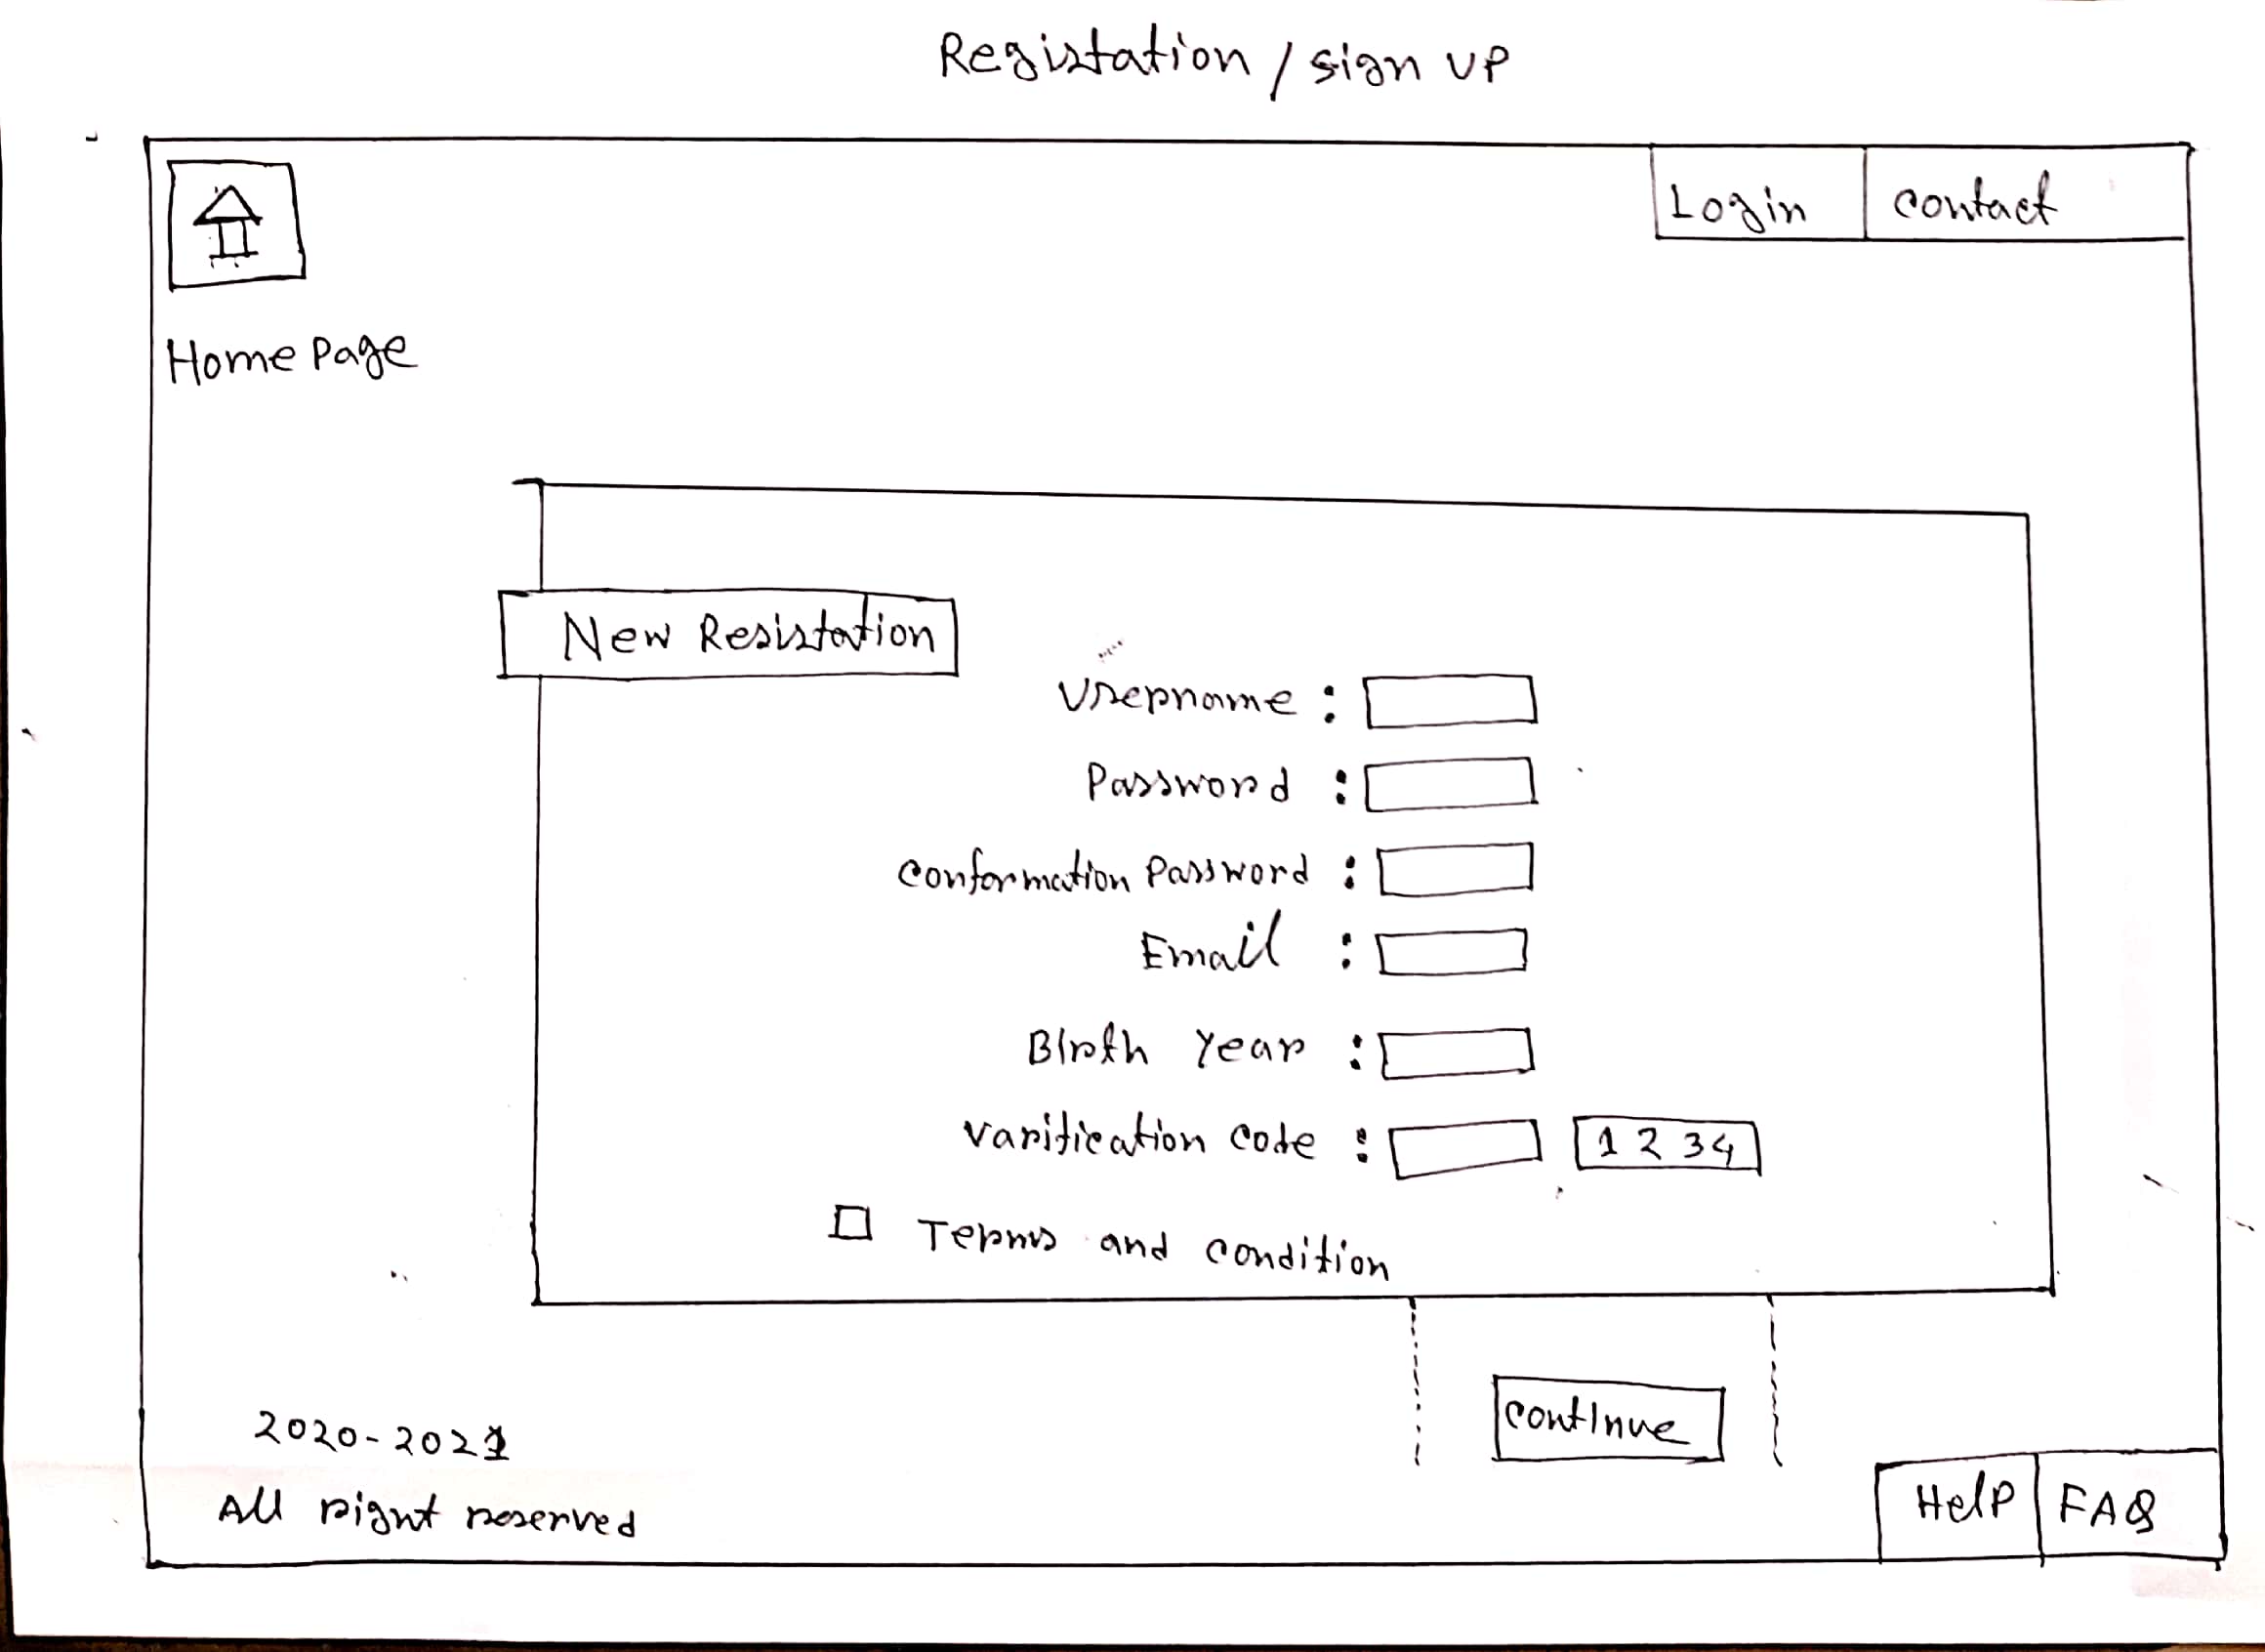 Registation / sign up
Login
contact
Home Page
New Resistation
Username :
Password :
Conformation Password :
Email :
Birth Year :
Varification Code : 1234
Terms and condition
continue
2020-2021
All right reserved
Help
FAQ